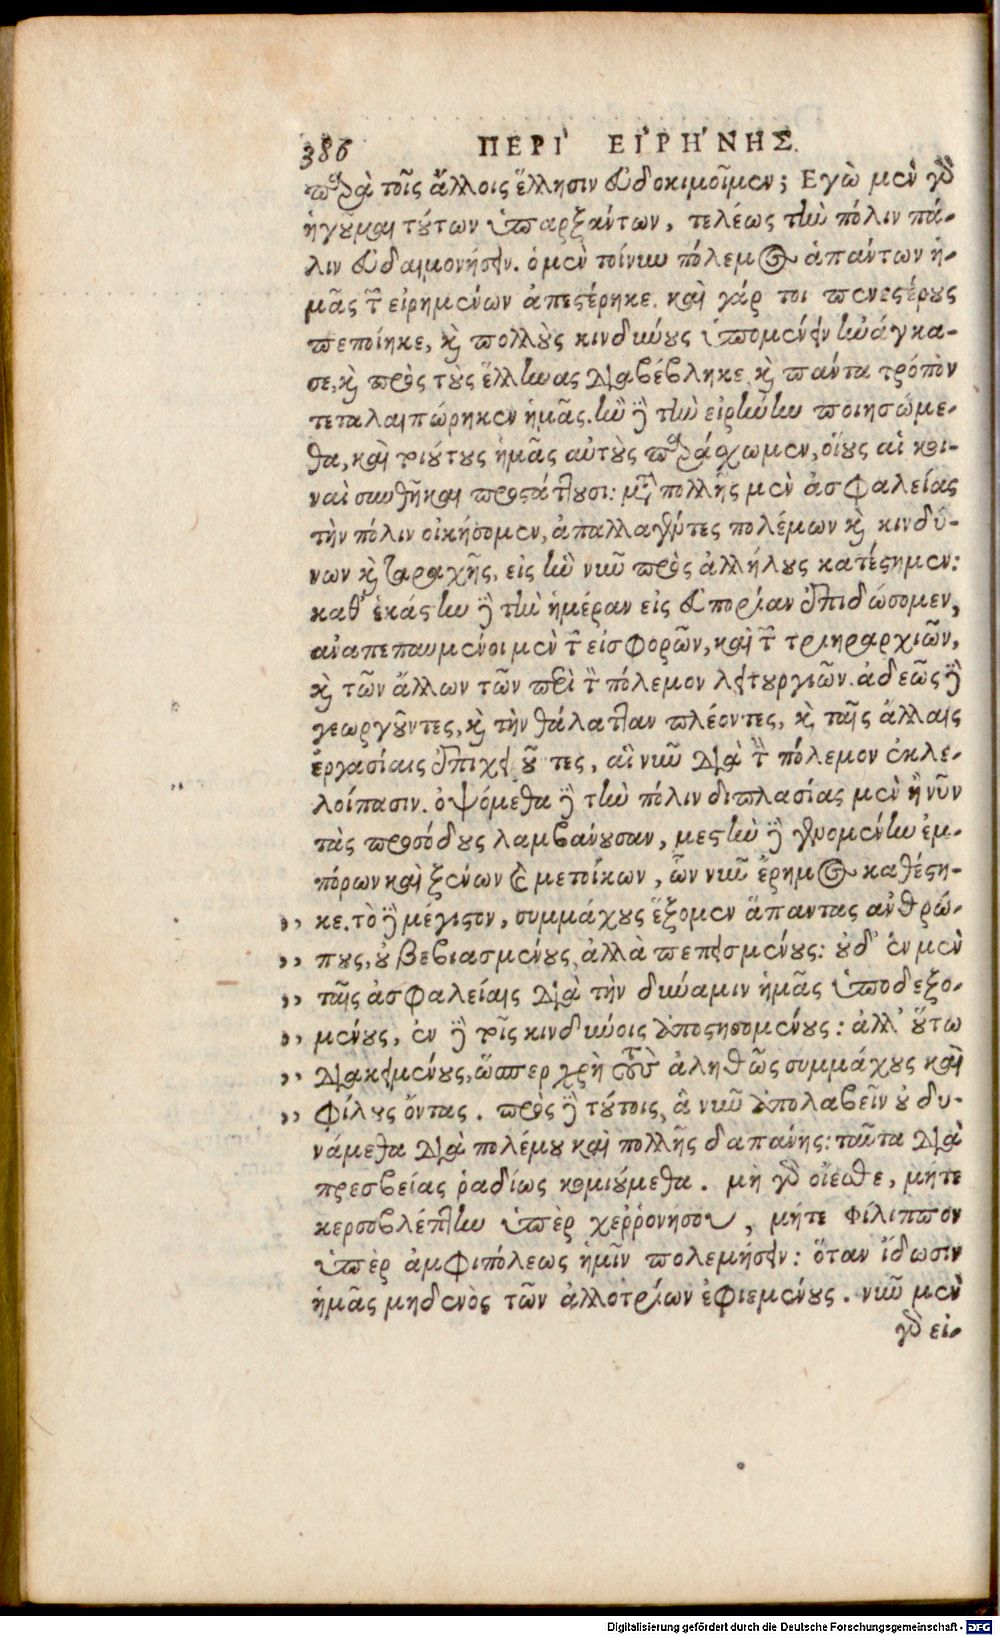 386 ΠΕΡῚ ΕἸΡΉΝΗΣ.
παρὰ τοῖς ἄλλοις ἕλλησιν εὐδοκιμοῖμεν; Εγὼ μὲν γὸ
ἡγοῦμαι τούτων ὑπαρξάντων, τελέως τὴν πόλιν πά-
λιν εὐδαιμονήσειν. ὁ μὲν τοίνυν πόλεμος ἁπάντων ἡ-
μᾶς τῶν εἰρημένων ἀπεστέρηκε. καὶ γάρ τοι πενεστέρους
πεποίηκε, καὶ πολλοὺς κινδύνους ὑπομένειν ἠνάγκα-
σε, καὶ πρὸς τοὺς ἕλληνας διαβέβληκε, καὶ πάντα τρόπον
τεταλαιπώρηκεν ἡμᾶς. ἢν δὲ τὴν εἰρήνην ποιησώμε-
θα, καὶ τοιούτους ἡμᾶς αὐτοὺς παράσχωμεν, οἵους αἱ κοι-
ναὶ συνθῆκαι προστάττουσι: μετὰ πολλῆς μὲν ἀσφαλείας
τὴν πόλιν οἰκήσομεν, ἀπαλλαγέντες πολέμων καὶ κινδύ-
νων καὶ ταραχῆς, εἰς ἣν νῦν πρὸς ἀλλήλους κατέστημεν:
καθ' ἑκάστην δὲ τὴν ἡμέραν εἰς εὐπορίαν ἐπιδώσομεν,
ἀναπεπαυμένοι μὲν τῶν εἰσφορῶν, καὶ τῶν τριηραρχιῶν,
καὶ τῶν ἄλλων τῶν περὶ τὸν πόλεμον λειτουργιῶν. ἀδεῶς δὲ
γεωργοῦντες, καὶ τὴν θάλατταν πλέοντες, καὶ ταῖς ἄλλαις
ἐργασίαις ἐπιχειροῦντες, αἳ νῦν διὰ τὸν πόλεμον ἐκλε-
λοίπασιν. ὀψόμεθα δὲ τὴν πόλιν διπλασίας μὲν ἢ νῦν
τὰς προσόδους λαμβάνουσαν, μεστὴν δὲ γενομένην ἐμ-
πόρων καὶ ξένων καὶ μετοίκων, ὧν νῦν ἔρημος καθέστη-
,, κε. τὸ δὲ μέγιστον, συμμάχους ἕξομεν ἅπαντας ἀνθρώ-
,, πους, οὐ βεβιασμένους, ἀλλὰ πεπεισμένους: οὐδ' ἐν μὲν
,, ταῖς ἀσφαλείαις διὰ τὴν δύναμιν ἡμᾶς ὑποδεξο-
,, μένους, ἐν δὲ τοῖς κινδύνοις ἀποστησομένους: ἀλλ' οὕτω
,, διακειμένους, ὥσπερ χρὴ τοὺς ἀληθῶς συμμάχους καὶ
,, φίλους ὄντας. πρὸς δὲ τούτοις, ἃ νῦν ἀπολαβεῖν οὐ δυ-
νάμεθα διὰ πολέμου καὶ πολλῆς δαπάνης: ταῦτα διὰ
πρεσβείας ῥαδίως κομιούμεθα. μὴ γὸ οἴεσθε, μήτε
κερσοβλέπτην ὑπὲρ χεῤῥονήσου, μήτε Φίλιππον
ὑπὲρ ἀμφιπόλεως ἡμῖν πολεμήσειν: ὅταν ἴδωσιν
ἡμᾶς μηδενὸς τῶν ἀλλοτρίων ἐφιεμένους. νῦν μὲν
γὸ εἰ-
Digitalisierung gefördert durch die Deutsche Forschungsgemeinschaft - DFG